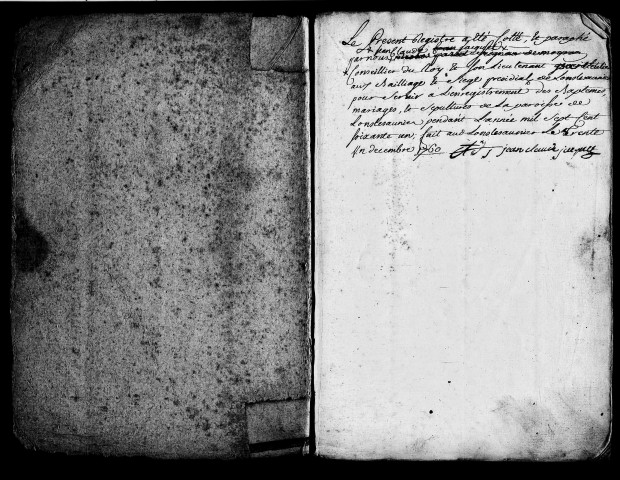 Le Present Registre a été Cotté, & paraphé
Jean Claude Jacques
par nous
Conseiller du Roy & Son Lieutenant
aux Bailliage & Siege presidial de Lonslesaunier
pour Servir a Lenregistrement des Baptemes,
mariages, & Sepultures de La paroisse de
Lonslesaunier pendant Lannée mil Sept Cent
soixante un, fait aud Lonslesaunier Le trente
un decembre 1760 jean claude jacques